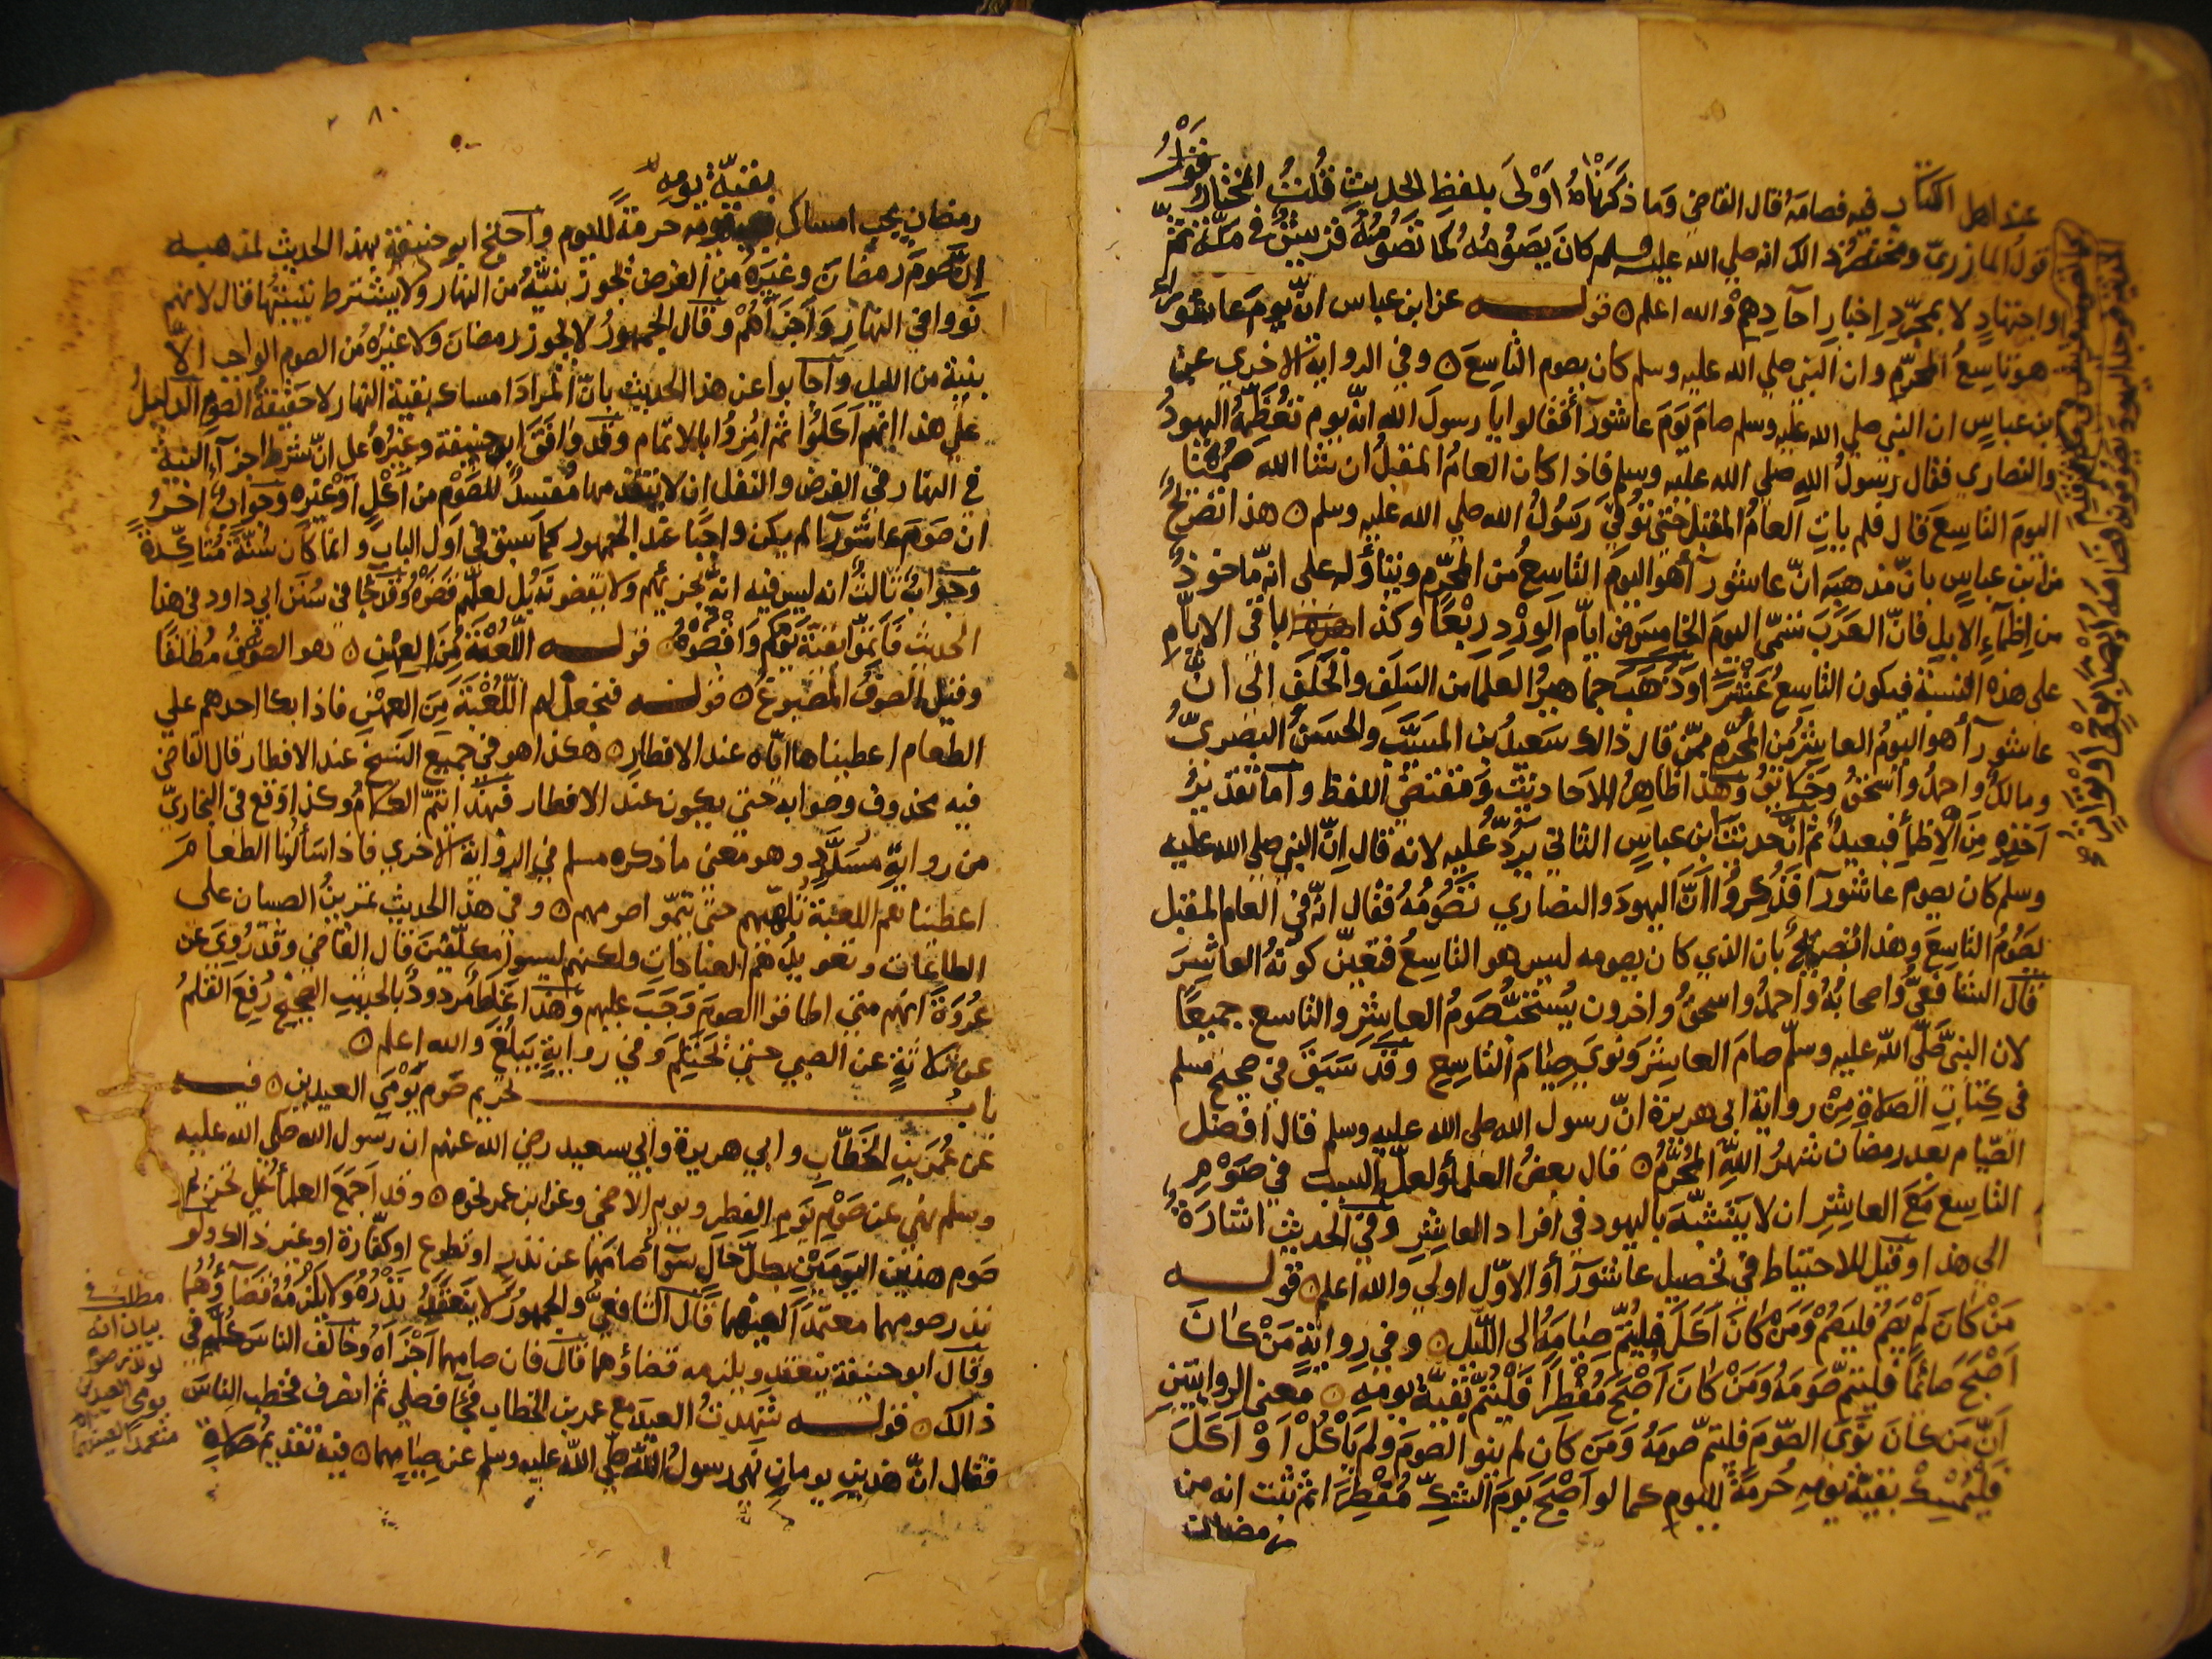 عند اهل الكتاب فيه فصامه قال القاضي وما ذكرناه اولى بلفظ الحديث قلت المختار
قول المازري ومختصر ذالك انه صلي الله عليه وسلم كان يصومه كما تصومه قريش في مكة ثم
واجتهاد لا بمجرد اخبار آحادهم والله اعلم ه قوله عن ابن عباس ان يوم عاشوراء
هو تاسع المحرم وان النبي صلي الله عليه وسلم كان يصوم التاسع ه وفي الرواية الاخري عن
ابن عباس ان النبي صلي الله عليه وسلم صام يوم عاشوراء فقالوا يا رسول الله انه يوم تعظمه اليهود
والنصاري فقال رسول الله صلي الله عليه وسلم فاذا كان العام المقبل ان شا الله صمنا
اليوم التاسع قال فلم يات العام المقبل حتي توفي رسول الله صلي الله عليه وسلم ه هذا تصريح
من ابن عباس بان مذهبه ان عاشورآ هو اليوم التاسع من المحرم ويتأوله علي انه ماخوذ
من اظمآء الابل فان العرب تسمي اليوم الخامس من ايام الورد ربعا وكذا باقي الايام
على هذه النسبة فيكون التاسع عشرا وذهب جماهير العلما من السلف والخلف الى ان
عاشورآ هو اليوم العاشر من المحرم ممن قال ذالك سعيد بن المسيب والحسن البصري
ومالك واحمد واسحق وخلائق وهذا ظاهر الاحاديث ومقتضي اللفظ واما تقدير
اخذه من الاظمأ فبعيد ثم ان حديث ابن عباس الثاني يرد عليه لانه قال ان النبي صلي الله عليه
وسلم كان يصوم عاشورآ فذكروا ان اليهود والنصاري تصومه فقال انه في العام المقبل
يصوم التاسع وهذا تصريح بان الذي كان يصومه ليس هو التاسع فتعين كونه العاشر
قال الشافعي واصحابه واحمد واسحق واخرون يستحب صوم العاشر والتاسع جميعا
لان النبي صلي الله عليه وسلم صام العاشر ونوي صيام التاسع وقد سبق في صحيح مسلم
في كتاب الصلاة من رواية ابي هريرة ان رسول الله صلي الله عليه وسلم قال افضل
الصيام بعد رمضان شهر الله المحرم ه قال بعض العلمأ ولعل السبب في صوم
التاسع مع العاشر ان لا يتشبه باليهود في افراد العاشر وفي الحديث اشارة
الي هذا وقيل للاحتياط في تحصيل عاشورآ والاول اولي والله اعلم ه قوله
من كان لم يصم فليصم ومن كان اكل فليتم صيامه الي الليل ه وفي رواية من كان
اصبح صائما فليتم صومه ومن كان اصبح مفطرا فليتم بقية يومه ه معني الروايتين
ان من كان نوي الصوم فليتم صومه ومن كان لم ينو الصوم ولم ياكل او اكل
فليمسك بقية يومه حرمة لليوم كما لو اصبح يوم الشك مفطرا ثم ثبت انه من
رمضان
٢٨٠
بقية يومه
رمضان يجب امساك حرمة لليوم واحتج ابو حنيفة بهذا الحديث لمذهبه
ان صوم رمضان وغيره من الفرض تجوز بنية من النهار ولا يشترط تبييتها قال لانهم
نووا في النهار واجزأهم وقال الجمهور لا تجوز رمضان ولا غيره من الصوم الواجب الا
بنية من الليل واجابوا عن هذا الحديث بان المراد امساك بقية النهار لا حقيقة الصوم الدليل
علي هذا انهم اكلوا ثم امروا بالاتمام وقد وافق ابو حنيفة وغيره علي ان شرط اجزآء النية
في النهار في الفرض والنفل ان لا يتقدمها مفسد للصوم من اكل او غيره وجواب اخر
ان صوم عاشورآ لم يكن واجبا عند الجمهور كما سبق في اول الباب وانما كان سنة متاكدة
وجواب ثالث انه ليس فيه انه يجزئهم ولا يقضونه بل لعلهم قضوه وقد جا في سنن ابي داود في هذا
الحديث فاتموا بقية يومكم واقضوه ه قوله اللعبة من العهن ه هو الصوف مطلقا
وقيل الصوف المصبوغ ه قوله فنجعل لهم اللعبة من العهن فاذا بكا احدهم علي
الطعام اعطيناها اياه عند الافطار ه هكذا هو في جميع النسخ عند الافطار قال القاضي
فيه محذوف وصوابه حتي يكون عند الافطار فبهذا يتم الكلام وكذا وقع في البخاري
من رواية مسدد وهو معني ما ذكره مسلم في الرواية الاخري فاذا سألونا الطعام
اعطيناهم اللعبة تلهيهم حتي يتموا صومهم ه وفي هذا الحديث تمرين الصبيان علي
الطاعات وتعويدهم العبادات ولكنهم ليسوا مكلفين قال القاضي وقد روي عن
عروة انهم متي اطاقوا الصوم وجب عليهم وهذا غلط مردود بالحديث الصحيح رفع القلم
عن ثلاثة عن الصبي حتي يحتلم وفي رواية يبلغ والله اعلم ه
باب تحريم صوم يومي العيدين ه فيه
عن عمر بن الخطاب وابي هريرة وابي سعيد رضي الله عنهم ان رسول الله صلي الله عليه
وسلم نهي عن صوم يوم الفطر ويوم الاضحي وعن ابن عمر نحوه ه وقد اجمع العلمأ علي تحريم
صوم هذين اليومين بكل حال سوآ صامهما عن نذر او تطوع او كفارة او غير ذالك ولو
نذر صومهما معتمدا لعينهما قال الشافعي والجمهور لا ينعقد نذره ولا يلزمه قضاؤهما
وقال ابو حنيفة ينعقد ويلزمه قضاؤهما قال فان صامهما اجزاه وخالف الناس كلهم في
ذالك ه قوله شهدت العيد مع عمر بن الخطاب فجآ فصلي ثم انصرف فخطب الناس
فقال ان هذين يومان نهي رسول الله صلي الله عليه وسلم عن صيامهما ه فيه تقديم صلاة
مطلب في
بيان انه
لو نذر صوم
يومي العيدين
متعمدا لعينهما